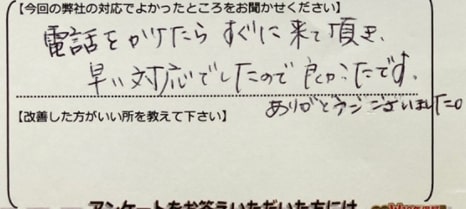 【今回の弊社の対応でよかったところをお聞かせください】
電話をかけたらすぐに来て頂き、
早い対応でしたので良かったです。
ありがとうございました。
【改善した方がいい所を教えて下さい】
アンケートをお答えいただいた方には